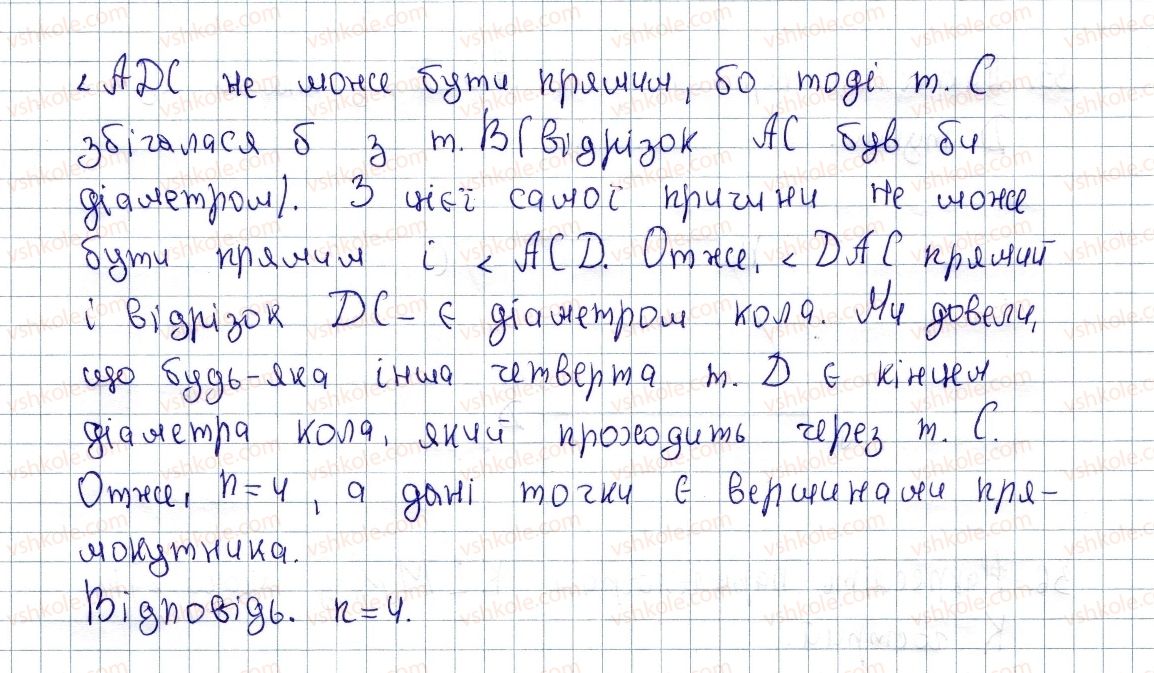 < ADC не може бути прямим, бо тоді т. C
збігалася б з т. B (відрізок AC був би
діаметром). З цієї самої причини не може
бути прямим і < ACD. Отже, < DAC прямий
і відрізок DC - є діаметром кола. Ми довели,
що будь-яка інша четверта т. D є кінцем
діаметра кола, який проходить через т. C.
Отже, n=4, а дані точки є вершинами пря-
мокутника.
Відповідь. n=4.